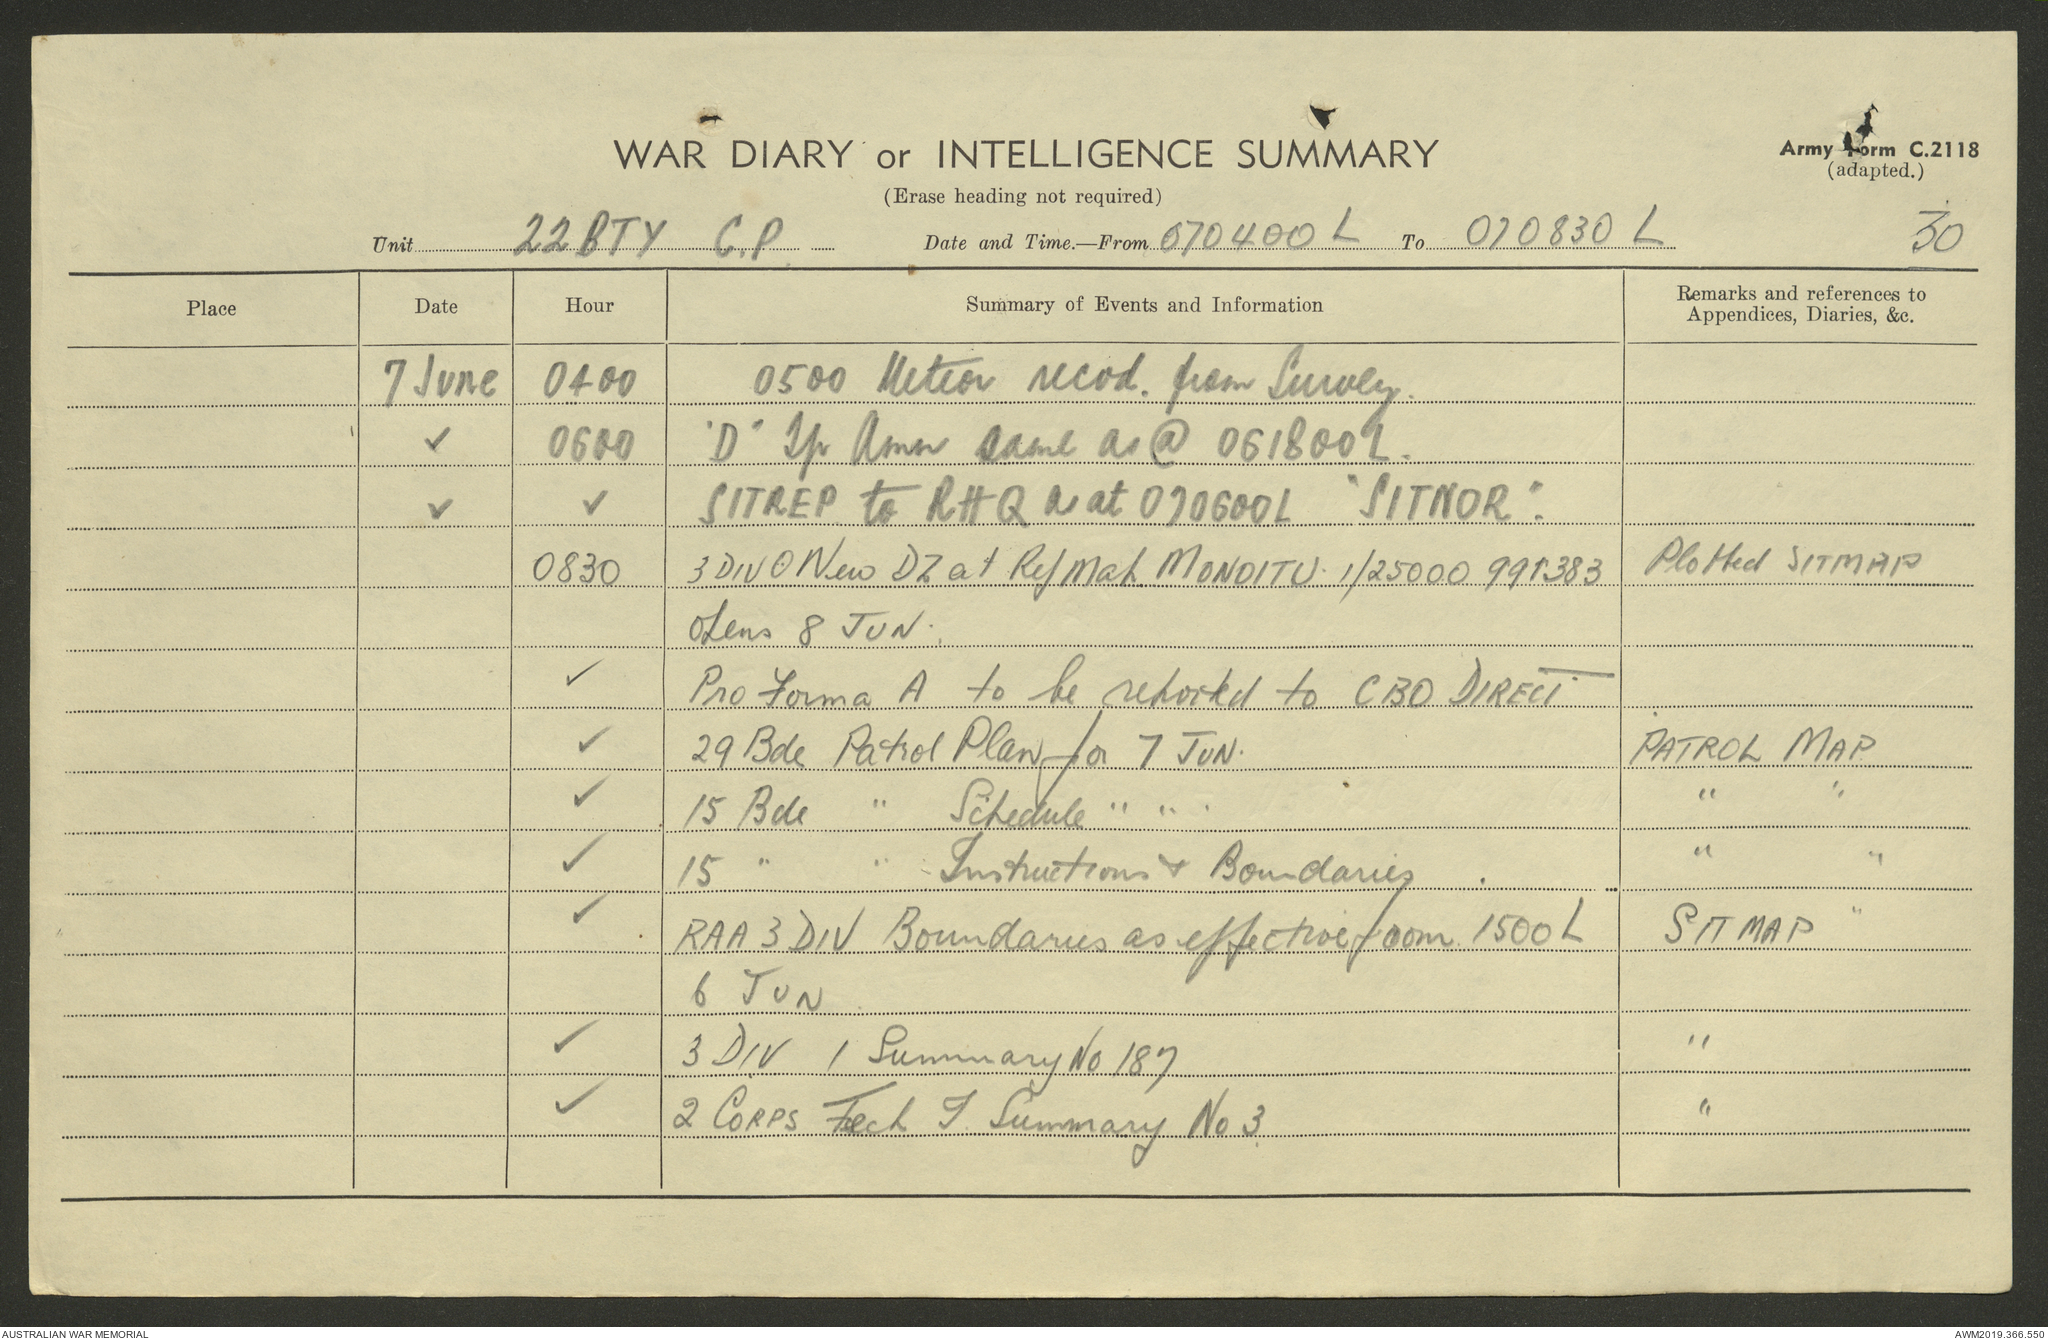 WAR DIARY or INTELLIGENCE SUMMARY
Army Form C.2118
(adapted.)
(Erase heading not required)
Unit 22 BTY C.P. Date and Time.—From 070400 L To 070830 L 30
Place Date Hour Summary of Events and Information Remarks and references to Appendices, Diaries, &c.
7 June 0400 0500 Meteor recvd. from Survey.
✓ 0600 "D" Tp Ammn same as @ 061800L.
✓ ✓ SITREP to RHQ as at 070600L "SITNOR".
0830 3 DIV O New DZ at Ref Map MONOITU 1/25000 991383 Plotted SITMAP
Opens 8 JUN.
✓ Pro Forma A to be reported to CBO DIRECT
✓ 29 Bde Patrol Plan for 7 JUN. PATROL MAP
✓ 15 Bde " Schedule " " " "
✓ 15 " " Instructions & Boundaries " "
✓ RAA 3 DIV Boundaries as effective from 1500 L SITMAP "
6 JUN
✓ 3 DIV I Summary No 187 "
✓ 2 CORPS Tech I. Summary No 3 "
AUSTRALIAN WAR MEMORIAL
AWM2019.366.550